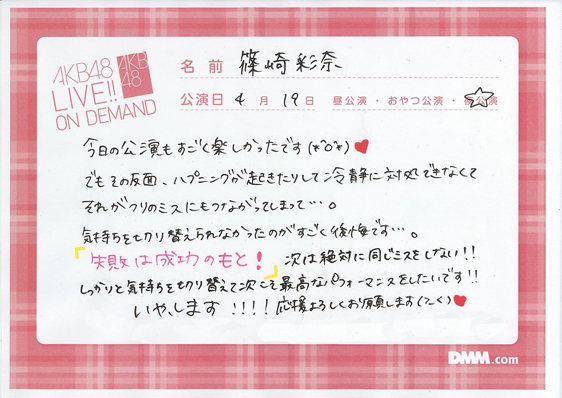 AKB48
LIVE!!
ON DEMAND
AKB
48
名前 篠崎彩奈
公演日 4月19日 昼公演・おやつ公演・夜公演
今日の公演もすごく楽しかったです(*^o^*)♥
でもその反面、ハプニングが起きたりして冷静に対処できなくて
それがフリのミスにもつながってしまって…。
気持ちを切り替えられなかったのがすごく後悔です…。
「失敗は成功のもと!」次は絶対に同じミスをしない!!
しっかりと気持ちを切り替えて次こそ最高なパフォーマンスをしたいです!!
いや、します!!!!応援よろしくお願します(^-^)♥
DMM.com